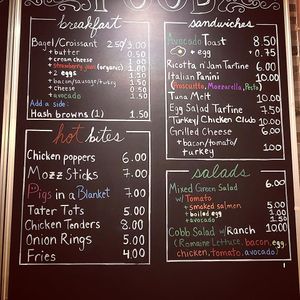 FOOD
breakfast
Bagel/Croissant 2.50/3.00
+butter 0.50
+cream cheese 1.00
+strawberry jam (organic) 1.00
+2 eggs
+bacon/sausage/turkey
+cheese
+avocado 1.50
Add a side:
Hash browns (1) 1.50
hot bites
Chicken poppers 6.00
Mozz Sticks 7.00
Pigs in a Blanket 7.00
Tater Tots 5.00
Chicken Tenders 8.00
Onion Rings 5.00
Fries 4.00
sandwiches
Avocado Toast 8.50
+ egg +0.75
Ricotta n' Jam Tartine 6.00
Italian Panini 10.00
(Proscuitto, Mozzarella, Pesto)
Tuna Melt 10.00
Egg Salad Tartine 3.50
Turkey/Chicken Club 10.00
Grilled Cheese 6.00
+bacon/tomato/
turkey 1.00
salads
Mixed Green Salad 6.00
w/ Tomato
+smoked salmon 5.00
+boiled egg 1.00
+avocado 1.50
Cobb Salad w/Ranch 10.00
(Romaine Lettuce, bacon, egg,
chicken, tomato, avocado)